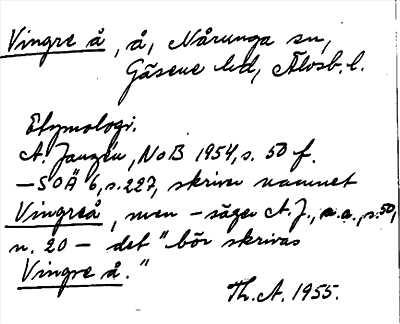 Vingre å, å, Nårunga sn,
Gäsene hd, Älvsb. l.
Etymologi.
A. Janzén, NoB 1954, s. 50 f.
— SOÄ 6, s. 227, skriver namnet
Vingreå, men – säger A.J., a.a., s. 50,
n. 20 – det "bör skrivas
Vingre å."
Th. A. 1955.